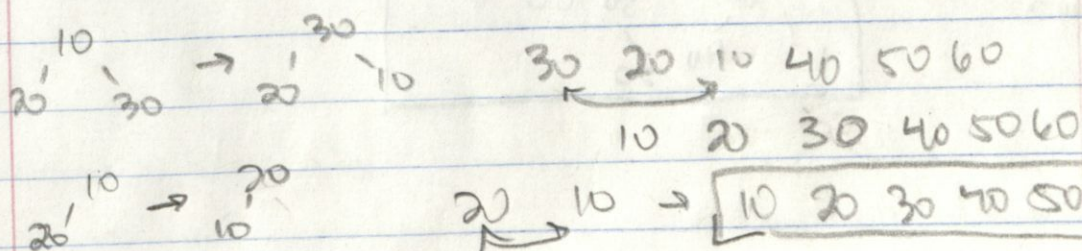 10 → 30
20 30 20 10 30 20 10 40 50 60
10 20 30 40 50 60
10 → 20 20 10 → 10 20 30 40 50
20 10